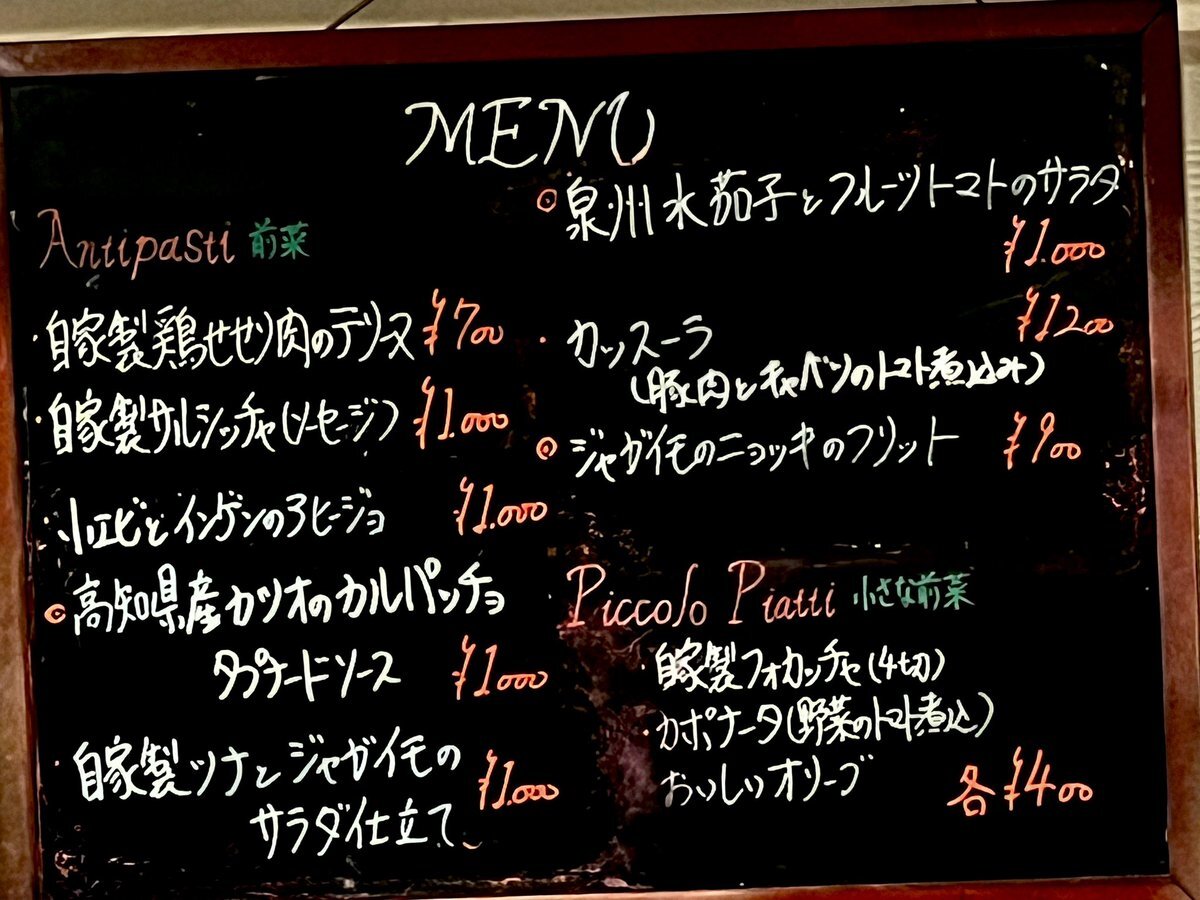 MENU
Antipasti 前菜
・自家製鶏せせり肉のテリーヌ ¥700
・自家製サルシッチャ(ソーセージ) ¥1.000
・小エビとインゲンのアヒージョ ¥1.000
◎高知県産カツオのカルパッチョ
タプナードソース ¥1.000
・自家製ツナとジャガイモの
サラダ仕立て ¥1.000
◎泉州水茄子とフルーツトマトのサラダ
¥1.000
・カッスーラ ¥1200
(豚肉とキャベツのトマト煮込み)
◎ジャガイモのニョッキのフリット ¥900
Piccolo Piatti 小さな前菜
・自家製フォカッチャ(4切)
・カポナータ(野菜のトマト煮込)
・おいしいオリーブ 各¥400